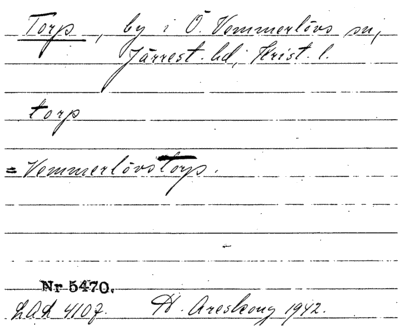 Torp, by i Ö. Vemmerlövs sn,
Järrest. hd, Krist. l.
torp
= Vemmerlövstorp.
Nr 5470.
LAL 4107. H. Areskoug 1942.